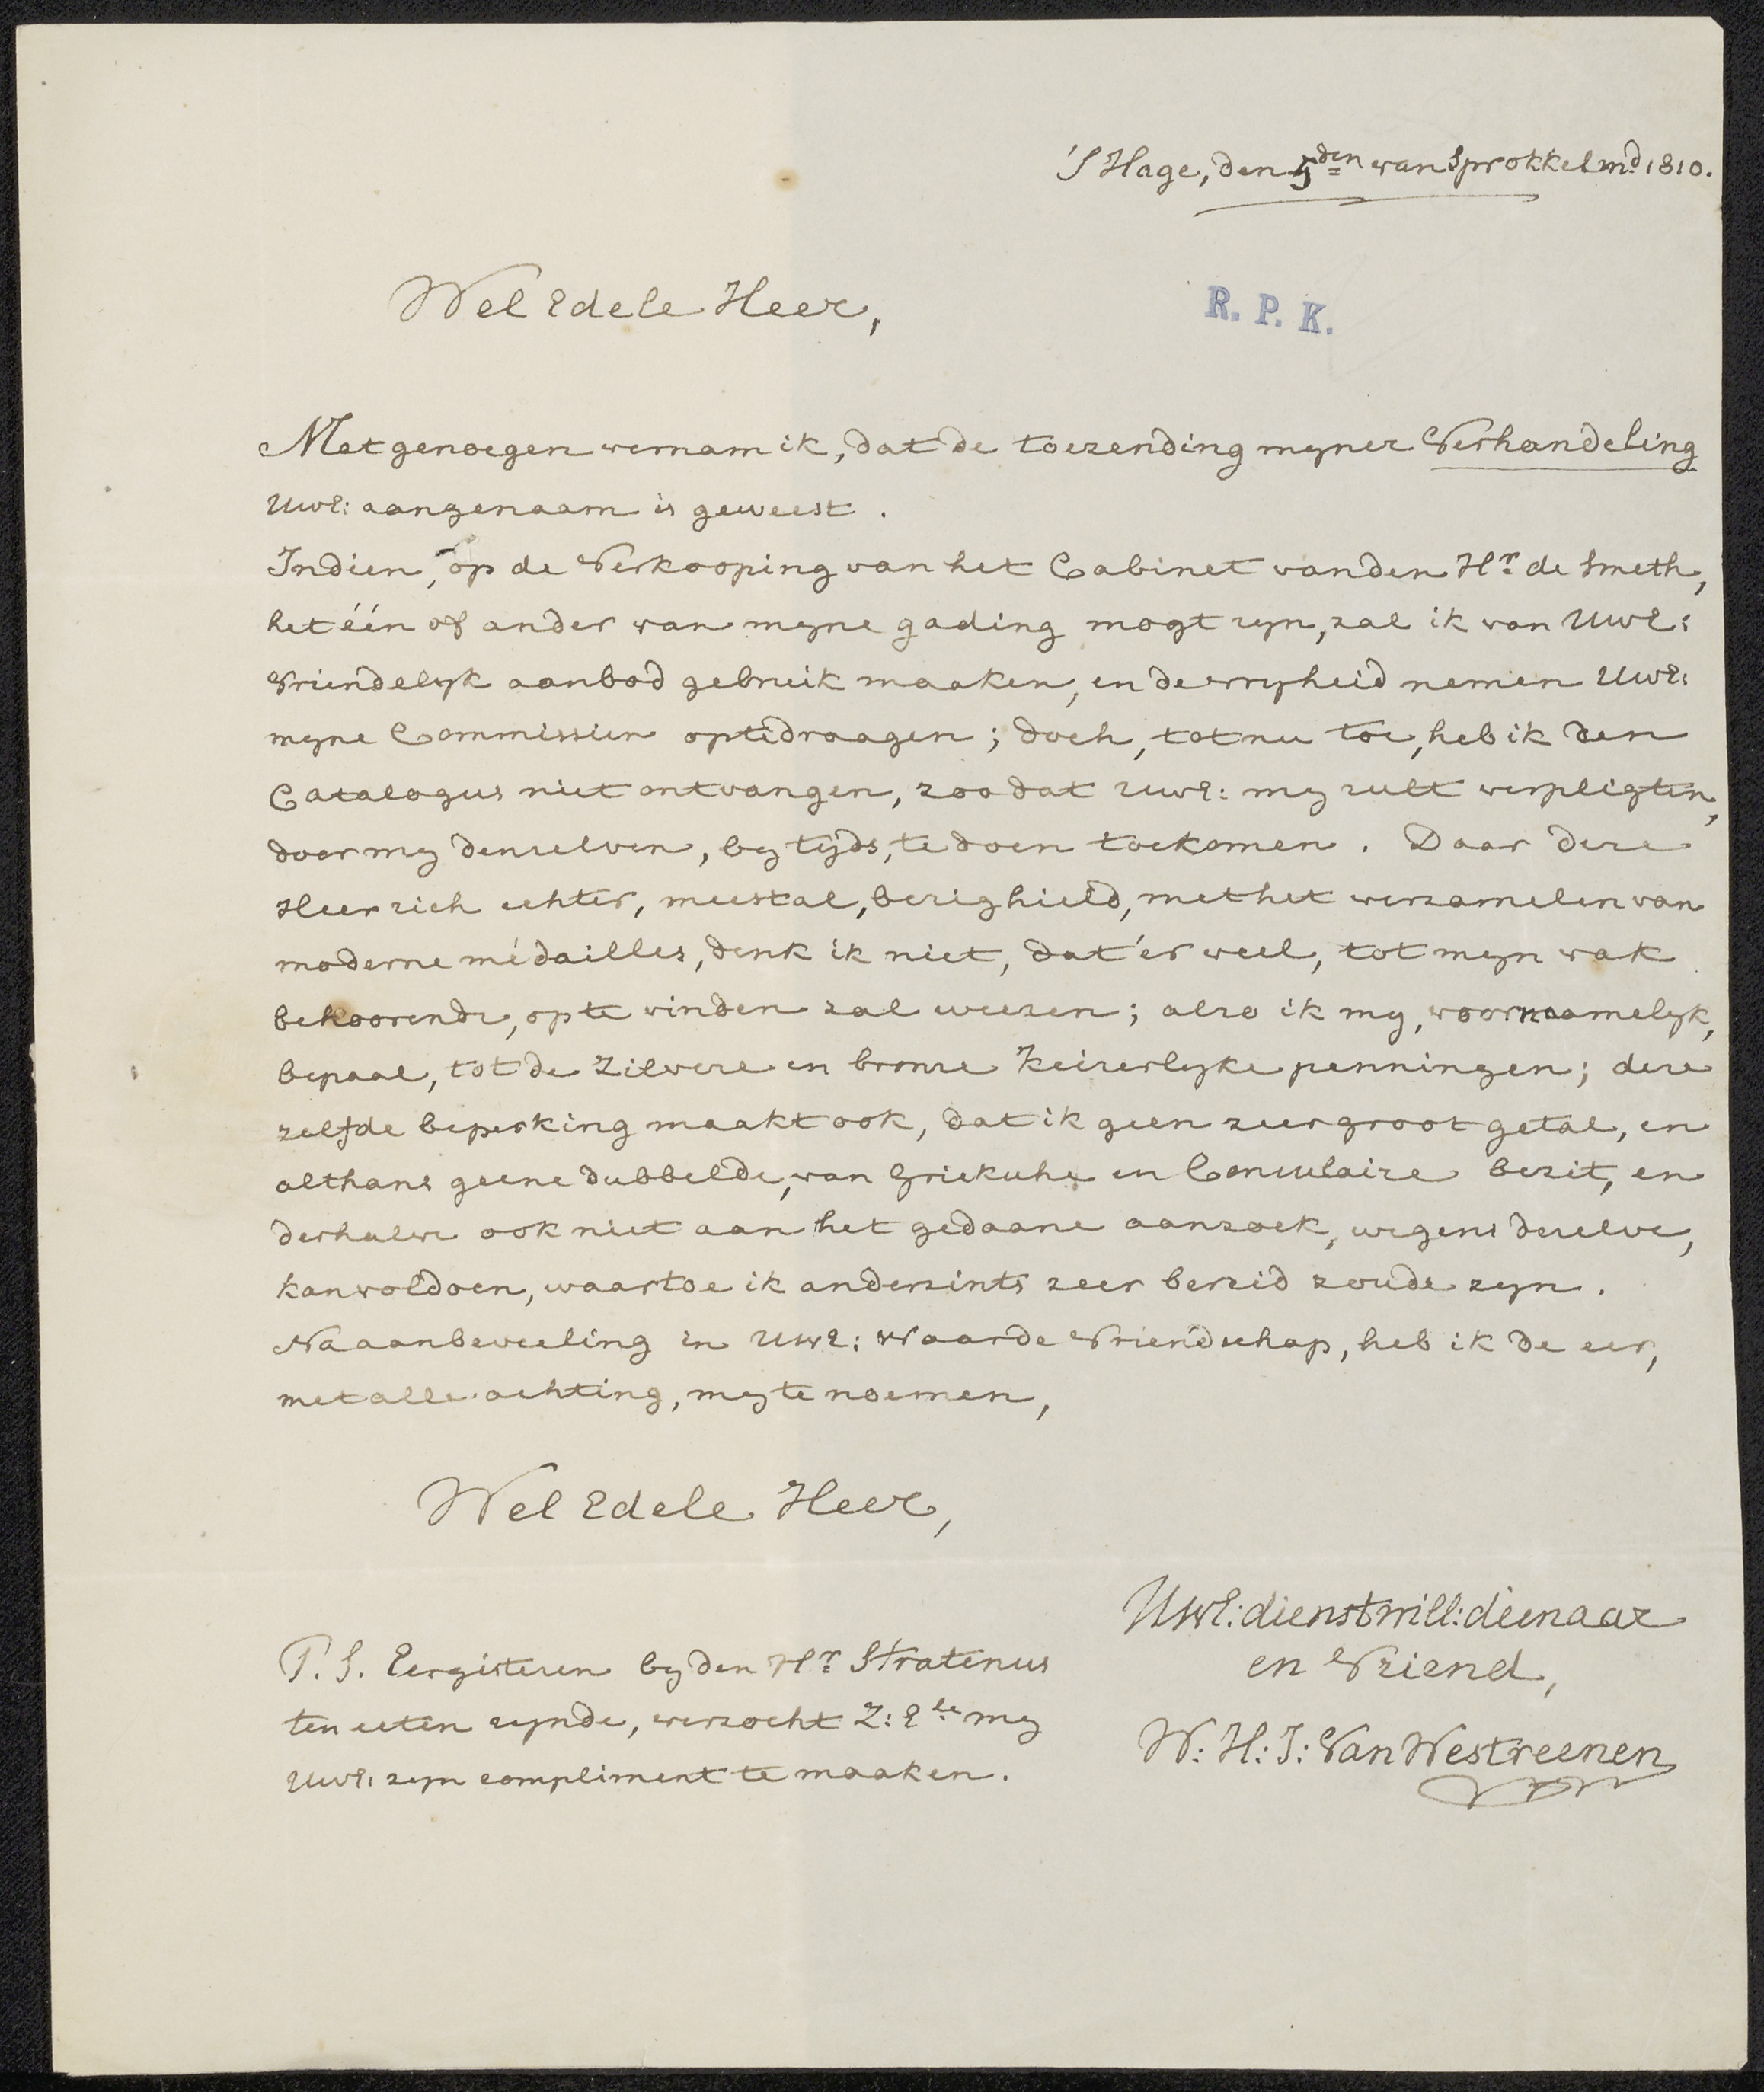 'S Hage, den 5den van Sprokkelmd. 1810.
Wel Edele Heer,
R. P. K.
Met genoegen vernam ik, dat de toezending myner Verhandeling
UwE: aangenaam is geweest.
Indien, op de Verkooping van het Cabinet van den Hr. de Smeth,
het één of ander van myne gading mogt zyn, zal ik van UwE:
vriendelyk aanbod gebruik maaken, en de vryheid nemen UwE:
myne Commissien optedraagen; doch, tot nu toe, heb ik den
Catalogus niet ontvangen, zoo dat UwE: my zult verpligten,
door my denzelven, by tyds, te doen toekomen. Daar deze
Heer zich echter, meestal, bezig hield, met het verzamelen van
moderne médailles, denk ik niet, dat 'er veel, tot myn vak
behoorende, op te vinden zal weezen; alzo ik my, voornaamelyk,
bepaal, tot de Zilvere en bronze Keizerlyke penningen; deze
zelfde beperking maakt ook, dat ik geen zeer groot getal, en
althans geene dubbelde, van Grieksche en Consulaire bezit, en
derhalve ook niet aan het gedaane aanzoek, wegens dezelve,
kan voldoen, waartoe ik anderzints zeer bereid zoude zyn.
Na aanbeveeling in UwE: Waarde Vriendschap, heb ik de eer,
met alle achting, my te noemen,
Wel Edele Heer,
UwE: dienstwill: dienaar
en Vriend,
W: H: J: Van Westreenen
P. S. Eergisteren by den Hr. Stratenus
ten eeten zynde, verzocht Z: Ele. my
UwE: zyn compliment te maaken.